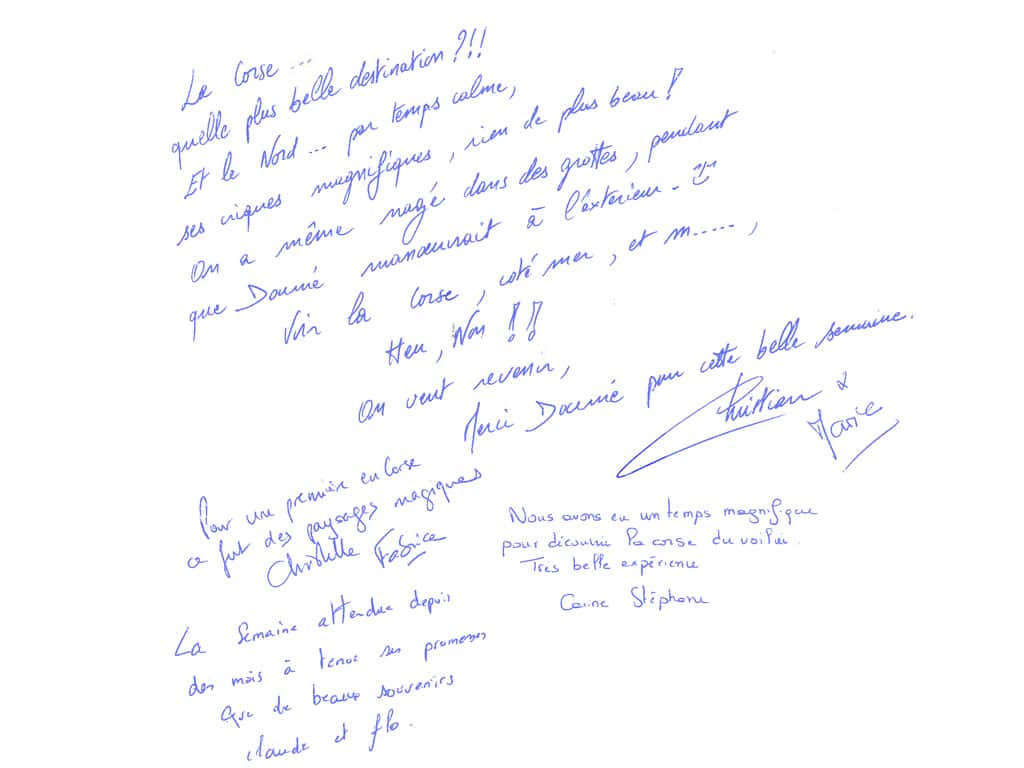 La Corse ...
quelle plus belle destination ?!!
Et le Nord ... par temps calme,
ses criques magnifiques, rien de plus beau !
On a même nagé dans des grottes, pendant
que Doumé manœuvrait à l'extérieur - :)
Voir la Corse, coté mer, et m.....,
Heu, Non !!
On veut revenir,
Merci Doumé pour cette belle semaine.
Christian &
Marie
Pour une première en Corse
ce fut des paysages magiques
Christelle Fabrice
Nous avons eu un temps magnifique
pour découvrir la corse du voilier.
Tres belle expérience
Carine Stéphane
La Semaine attendue depuis
des mois à tenue ses promesses
Que de beaux souvenirs
claude et flo.